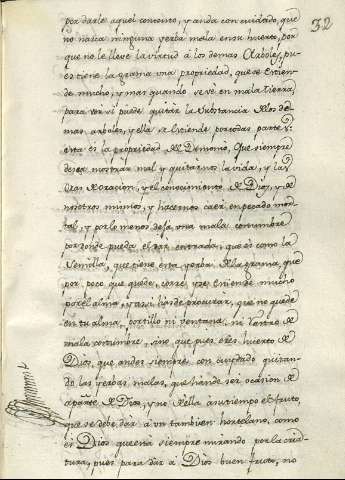 32
por darle aquel contento, y anda con cuidado, que
no nazca ninguna yerba mala en su huerto, por
que no le lleve la virtud á los demas Arboles, pu-
es tiene la grama una propriedad, que se estien-
de mucho, y mas quando se ve en mala tierra,
para ver si puede quitar la substancia de los de
mas arboles, y ella se estiende por todas partes;
esta es la propriedad del Demonio, que siempre
desea mostrar mal, y quitarnos la vida, y la
oracion, y el conocimiento de Dios, y de
nosotros mismos, y hacernos caer en pecado mor-
tal, y por lo menos dessa una mala costumbre
por donde pueda el ser entrada, que es como la
semilla, que tiene esta yerba de la grama, que
por poco que quede, corre, y se estiende mucho
por el alma, y assi has de procurar, que no quede
en tu alma, portillo ni ventana, ni rastro de
mala costumbre, sino que pues eres huerto de
Dios, que andes siempre con cuydado quitan-
do las yerbas malas, que han de ser ocasion de
apartte de Dios, y no dé ella a su tiempo el fruto,
que se debe dar á un tambuen hortelano, como
es Dios que está siempre mirando por la cria-
tura, pues para dar á Dios buen fruto, no